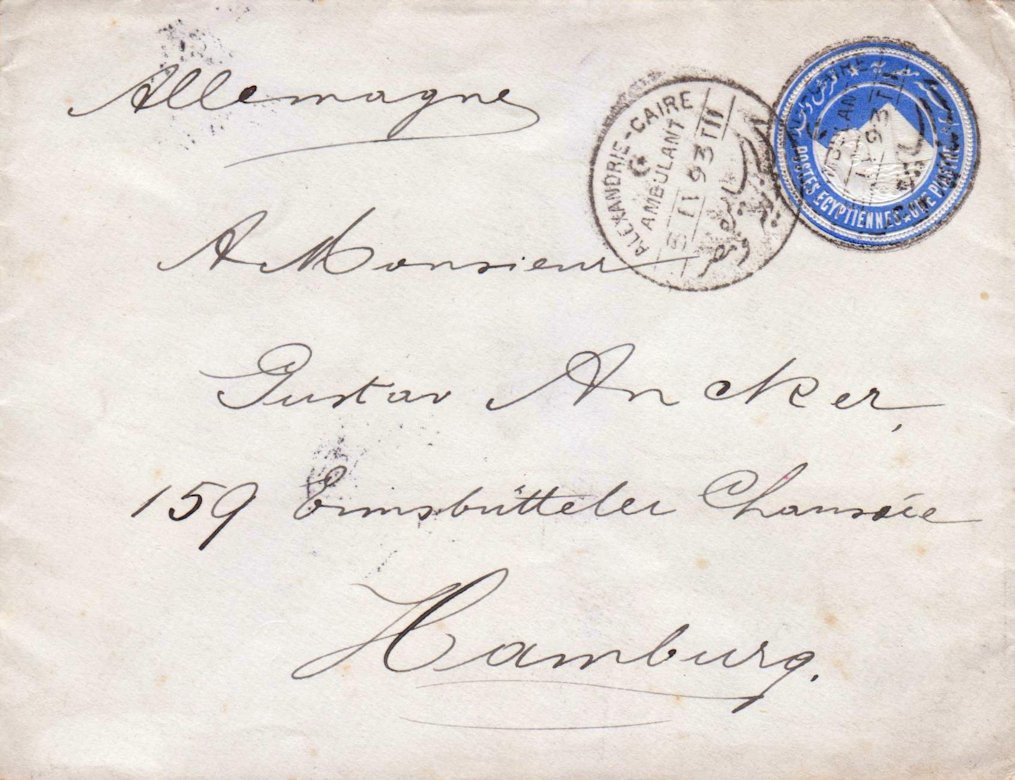 Allemagne
ALEXANDRIE-CAIRE
AMBULANT
93 T II
POSTES EGYPTIENNES
UNE PIASTRE
CAIRE
93 T
A Monsieur
Gustav Ancker,
159 Eimsbütteler Chaussée
Hamburg.